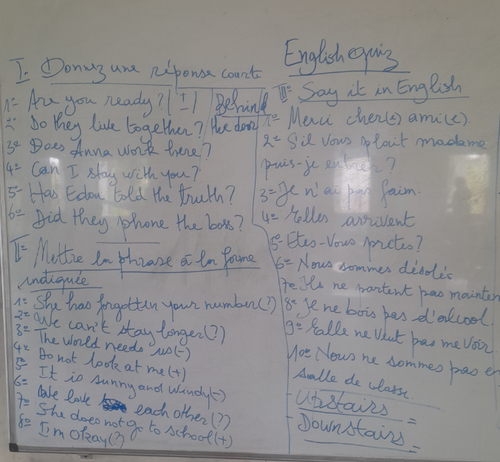 English quiz
I. Donnez une réponse courte
1= Are you ready? (I)
2= Do they live together?
3= Does Anna work here?
4= Can I stay with you?
5= Has Edou told the truth?
6= Did they phone the boss?
Behind
the door
II= Mettre la phrase à la forme
indiquée
1= She has forgotten your number(?)
2= We can't stay longer(?)
3= The world needs us(-)
4= Do not look at me(+)
5= It is sunny and windy(-)
6= We love each other(??)
7= She does not go to school(+)
8= I'm Okay(?)
III= Say it in English
1= Merci cher(e) ami(e).
2= S'il vous plait madame
puis-je entrer?
3= Je n'ai pas faim.
4= Elles arrivent
5= Etes-Vous prêtes?
6= Nous sommes désolés
7= ils ne partent pas mainten
8= Je ne bois pas d'alcool
9= Ealle ne veut pas me voir
10= Nous ne sommes pas en
salle de classe.
- Upstairs =
- Downstairs =